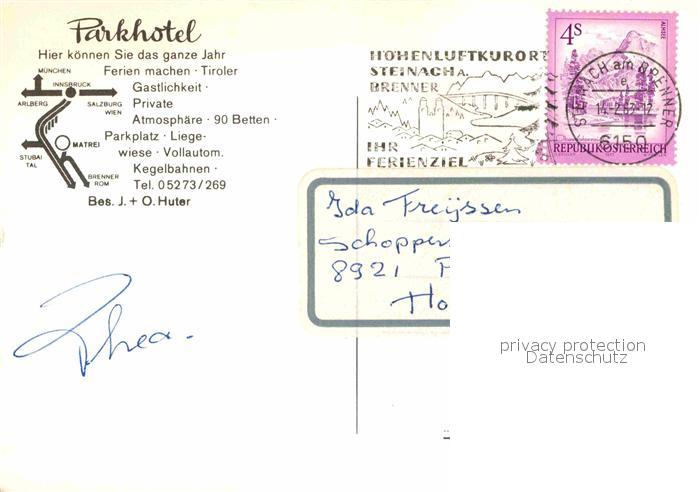 Parkhotel
Hier können Sie das ganze Jahr
Ferien machen · Tiroler
Gastlichkeit ·
Private
Atmosphäre · 90 Betten ·
Parkplatz · Liege-
wiese · Vollautom.
Kegelbahnen ·
Tel. 05273/269
Bes. J. + O. Huter
MÜNCHEN
INNSBRUCK
ARLBERG
SALZBURG
WIEN
MATREI
STUBAI
TAL
BRENNER
ROM
HÖHENLUFTKURORT
STEINACH A.
BRENNER
IHR
FERIENZIEL
4S
ALMSEE
REPUBLIK ÖSTERREICH
STEINACH am BRENNER
e
6150
Ida Freijssen
Schoppers
8921
Ho
Rhea.
privacy protection
Datenschutz